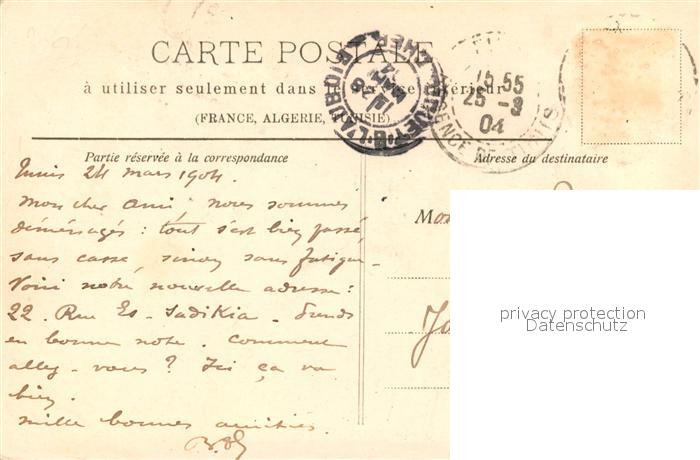 CARTE POSTALE
à utiliser seulement dans le service intérieur
(FRANCE, ALGERIE, TUNISIE)
Partie réservée à la correspondance
Adresse du destinataire
15 55
25 - 3
04
Tunis 24 mars 1904.
Mon cher ami nous sommes
déménagés : tout s'est bien passé
sans casse, sinon sans fatigue.
Voici notre nouvelle adresse :
22. Rue Es-Sadikia. Prends
en bonne note. Comment
allez-vous ? Ici ça va
bien.
Mille bonnes amitiés.
Mon
privacy protection
Datenschutz